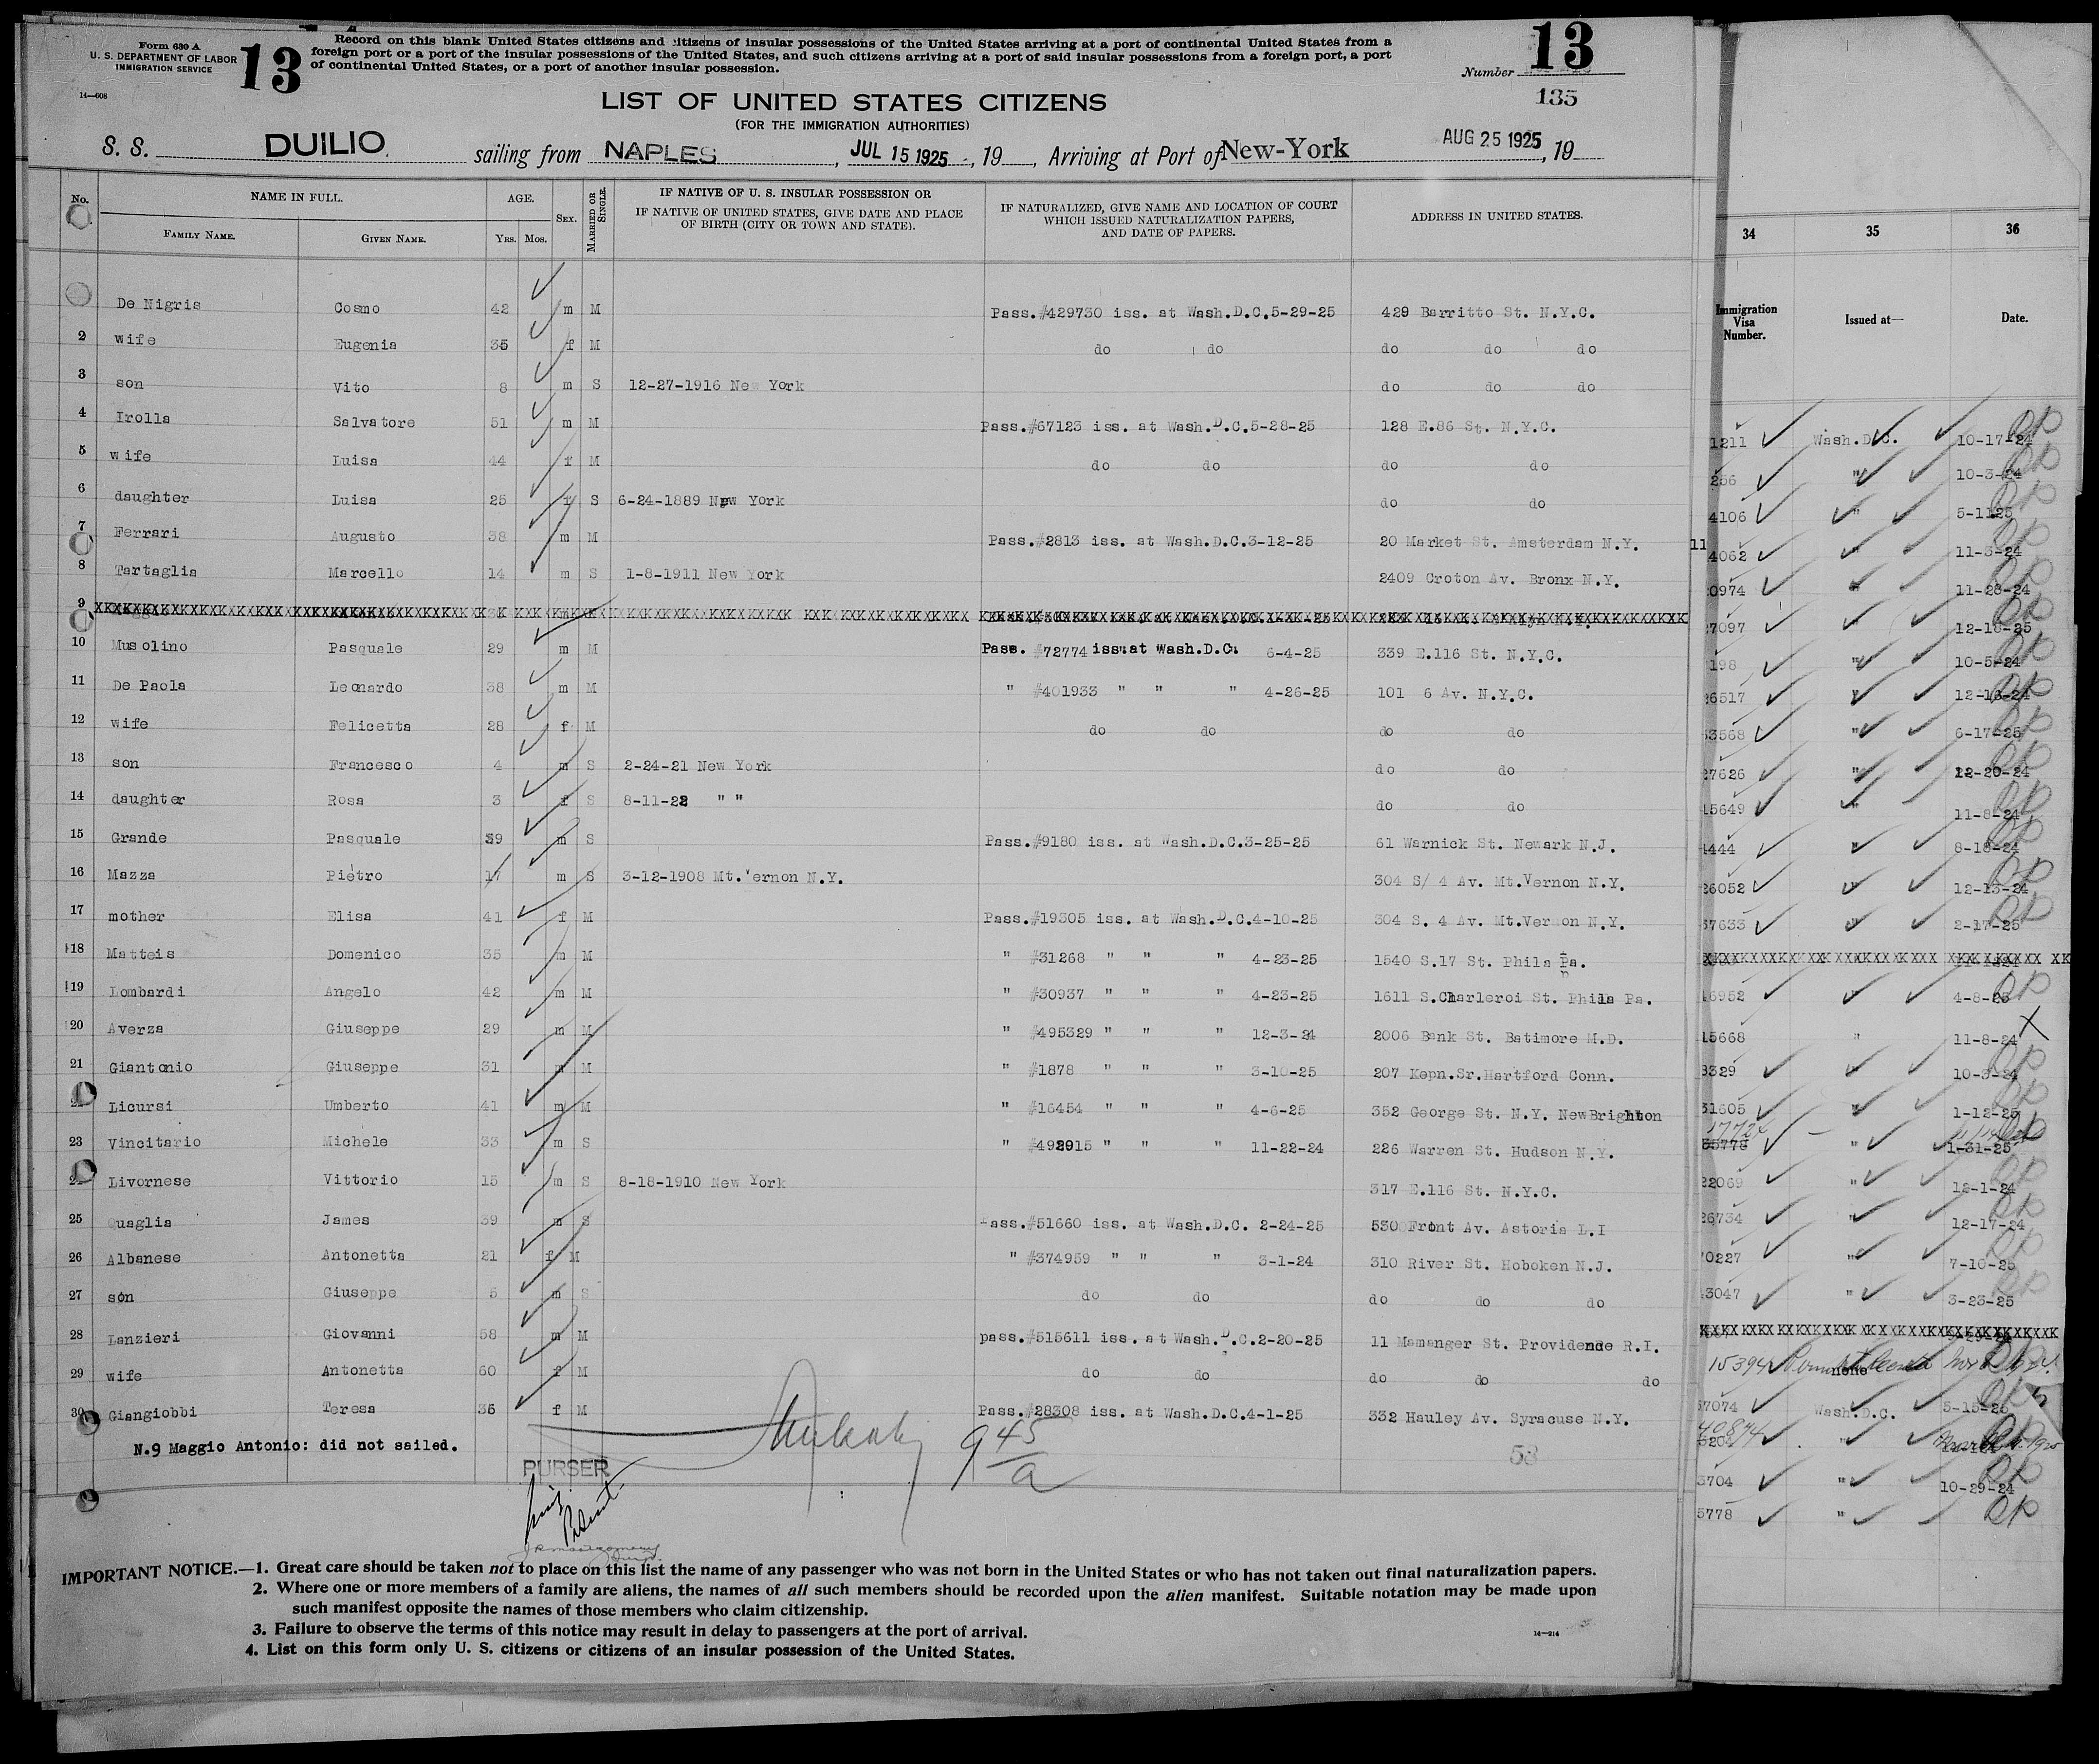 Form 630 A
U. S. DEPARTMENT OF LABOR
IMMIGRATION SERVICE
14—608
13
Record on this blank United States citizens and citizens of insular possessions of the United States arriving at a port of continental United States from a
foreign port or a port of the insular possessions of the United States, and such citizens arriving at a port of said insular possessions from a foreign port, a port
of continental United States, or a port of another insular possession.
Number 13
135
LIST OF UNITED STATES CITIZENS
(FOR THE IMMIGRATION AUTHORITIES)
S. S. DUILIO. sailing from NAPLES, JUL 15 1925, 19__, Arriving at Port of New-York AUG 25 1925, 19
No. NAME IN FULL. AGE. SEX. MARRIED OR SINGLE. IF NATIVE OF U. S. INSULAR POSSESSION OR
IF NATIVE OF UNITED STATES, GIVE DATE AND PLACE
OF BIRTH (CITY OR TOWN AND STATE). IF NATURALIZED, GIVE NAME AND LOCATION OF COURT
WHICH ISSUED NATURALIZATION PAPERS,
AND DATE OF PAPERS. ADDRESS IN UNITED STATES.
FAMILY NAME. GIVEN NAME. YRS. MOS.
De Nigris Cosmo 42 m M Pass.#429730 iss. at Wash.D.C.5-29-25 429 Barritto St. N.Y.C.
2 wife Eugenia 35 f M do do do do do
3 son Vito 8 m S 12-27-1916 New York do do do
4 Irolla Salvatore 51 m M Pass.#67123 iss. at Wash.D.C.5-28-25 128 E.86 St. N.Y.C.
5 wife Luisa 44 f M do do do do
6 daughter Luisa 25 f S 6-24-1889 New York do do
7 Ferrari Augusto 38 m M Pass.#2813 iss. at Wash.D.C.3-12-25 20 Market St. Amsterdam N.Y.
8 Tartaglia Marcello 14 m S 1-8-1911 New York 2409 Croton Av. Bronx N.Y.
9
10 Musolino Pasquale 29 m M Pass. #72774 iss.at Wash.D.C. 6-4-25 339 E.116 St. N.Y.C.
11 De Paola Leonardo 38 m M " #401933 " " " 4-26-25 101 6 Av. N.Y.C.
12 wife Felicetta 28 f M do do do do
13 son Francesco 4 m S 2-24-21 New York do do
14 daughter Rosa 3 f S 8-11-22 " " do do
15 Grande Pasquale 39 m S Pass.#9180 iss. at Wash.D.C.3-25-25 61 Warnick St. Newark N.J.
16 Mazza Pietro 17 m S 3-12-1908 Mt.Vernon N.Y. 304 S/ 4 Av. Mt.Vernon N.Y.
17 mother Elisa 41 f M Pass.#19305 iss. at Wash.D.C.4-10-25 304 S. 4 Av. Mt.Vernon N.Y.
18 Matteis Domenico 35 m M " #31268 " " " 4-23-25 1540 S.17 St. Phila Pa.
19 Lombardi Angelo 42 m M " #30937 " " " 4-23-25 1611 S.Charleroi St. Phila Pa.
20 Averza Giuseppe 29 m M " #495329 " " " 12-3-24 2006 Bank St. Batimore M.D.
21 Giantonio Giuseppe 31 m M " #1878 " " " 3-10-25 207 Kepn.Sr.Hartford Conn.
Licursi Umberto 41 m M " #16454 " " " 4-6-25 352 George St. N.Y. NewBrighton
23 Vincitario Michele 33 m S " #492915 " " " 11-22-24 226 Warren St. Hudson N.Y.
Livornese Vittorio 15 m S 8-18-1910 New York 317 E.116 St. N.Y.C.
25 Quaglia James 39 m S Pass.#51660 iss. at Wash.D.C. 2-24-25 530 Front Av. Astoria L.I
26 Albanese Antonetta 21 f M " #374959 " " " 3-1-24 310 River St. Hoboken N.J.
27 son Giuseppe 5 m S do do do do do
28 Lanzieri Giovanni 58 m M pass.#515611 iss. at Wash.D.C.2-20-25 11 Mamanger St. Providence R.I.
29 wife Antonetta 60 f M do do do do do
30 Giangiobbi Teresa 36 f M Pass.#28308 iss. at Wash.D.C.4-1-25 332 Hauley Av. Syracuse N.Y.
N.9 Maggio Antonio: did not sailed.
PURSER
945
a
53
IMPORTANT NOTICE.—1. Great care should be taken not to place on this list the name of any passenger who was not born in the United States or who has not taken out final naturalization papers.
2. Where one or more members of a family are aliens, the names of all such members should be recorded upon the alien manifest. Suitable notation may be made upon
such manifest opposite the names of those members who claim citizenship.
3. Failure to observe the terms of this notice may result in delay to passengers at the port of arrival.
4. List on this form only U. S. citizens or citizens of an insular possession of the United States.
14—214
34 35 36
Immigration Visa Number. Issued at— Date.
1211 Wash.D.C. 10-17-24
256 " 10-3-24
4106 " 5-1125
11 4062 " 11-3-24
0974 " 11-28-24
7097 " 12-18-25
198 " 10-5-24
26517 " 12-16-24
3568 " 6-17-25
27626 " 12-20-24
15649 " 11-8-24
4444 " 8-18-24
26052 " 12-13-24
37633 " 2-17-25
16952 " 4-8-25
15668 " 11-8-24
8329 " 10-3-24
31605 " 1-12-25
35778 " 1-31-25
22069 " 12-1-24
26734 " 12-17-24
70227 " 7-10-25
13047 " 3-23-25
15394 none
37074 Wash.D.C. 5-15-25
40874 "
3704 " 10-29-24
5778 "